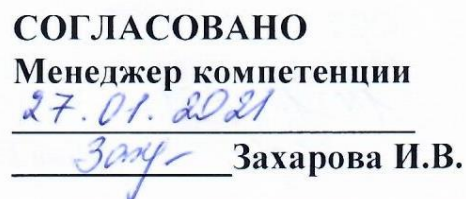 СОГЛАСОВАНО
Менеджер компетенции
27.01.2021
Захарова И.В.